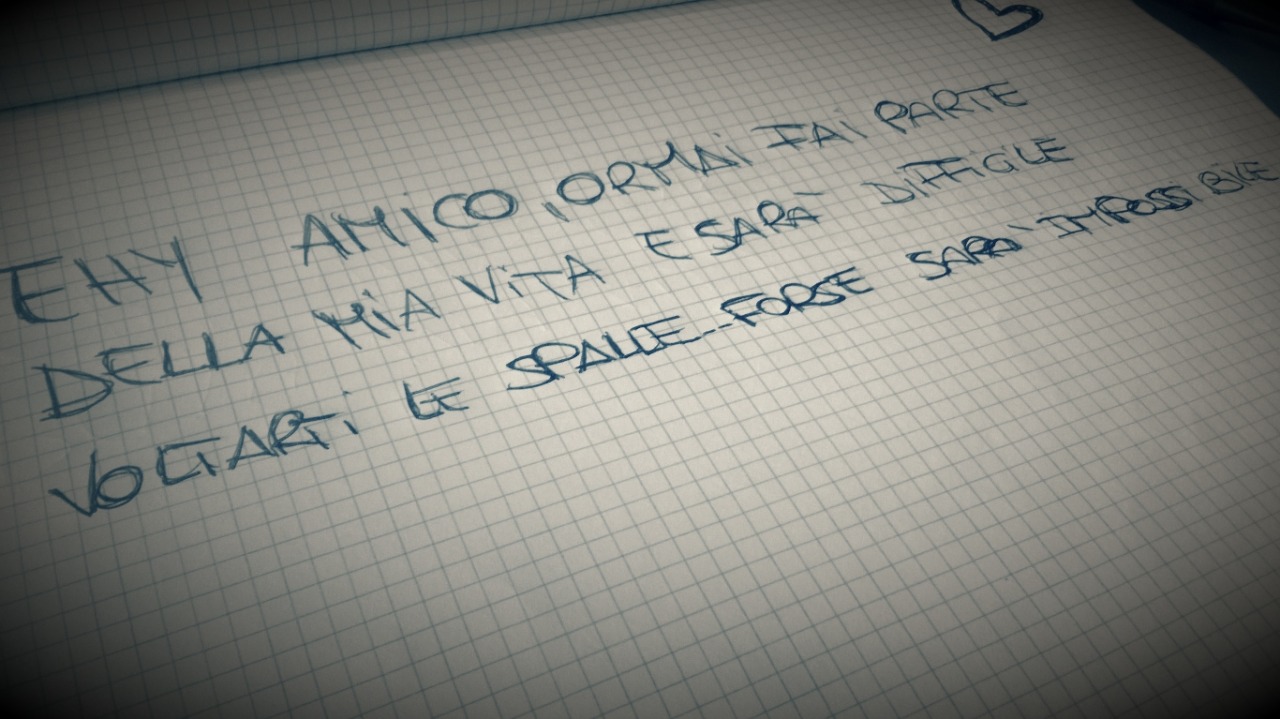 EHY AMICO, ORMAi FAi PARTE
DELLA MiA ViTA E SARA' DIFFICILE
VOLTARTi LE SPALLE...FORSE SARA' IMPOSSiBILE